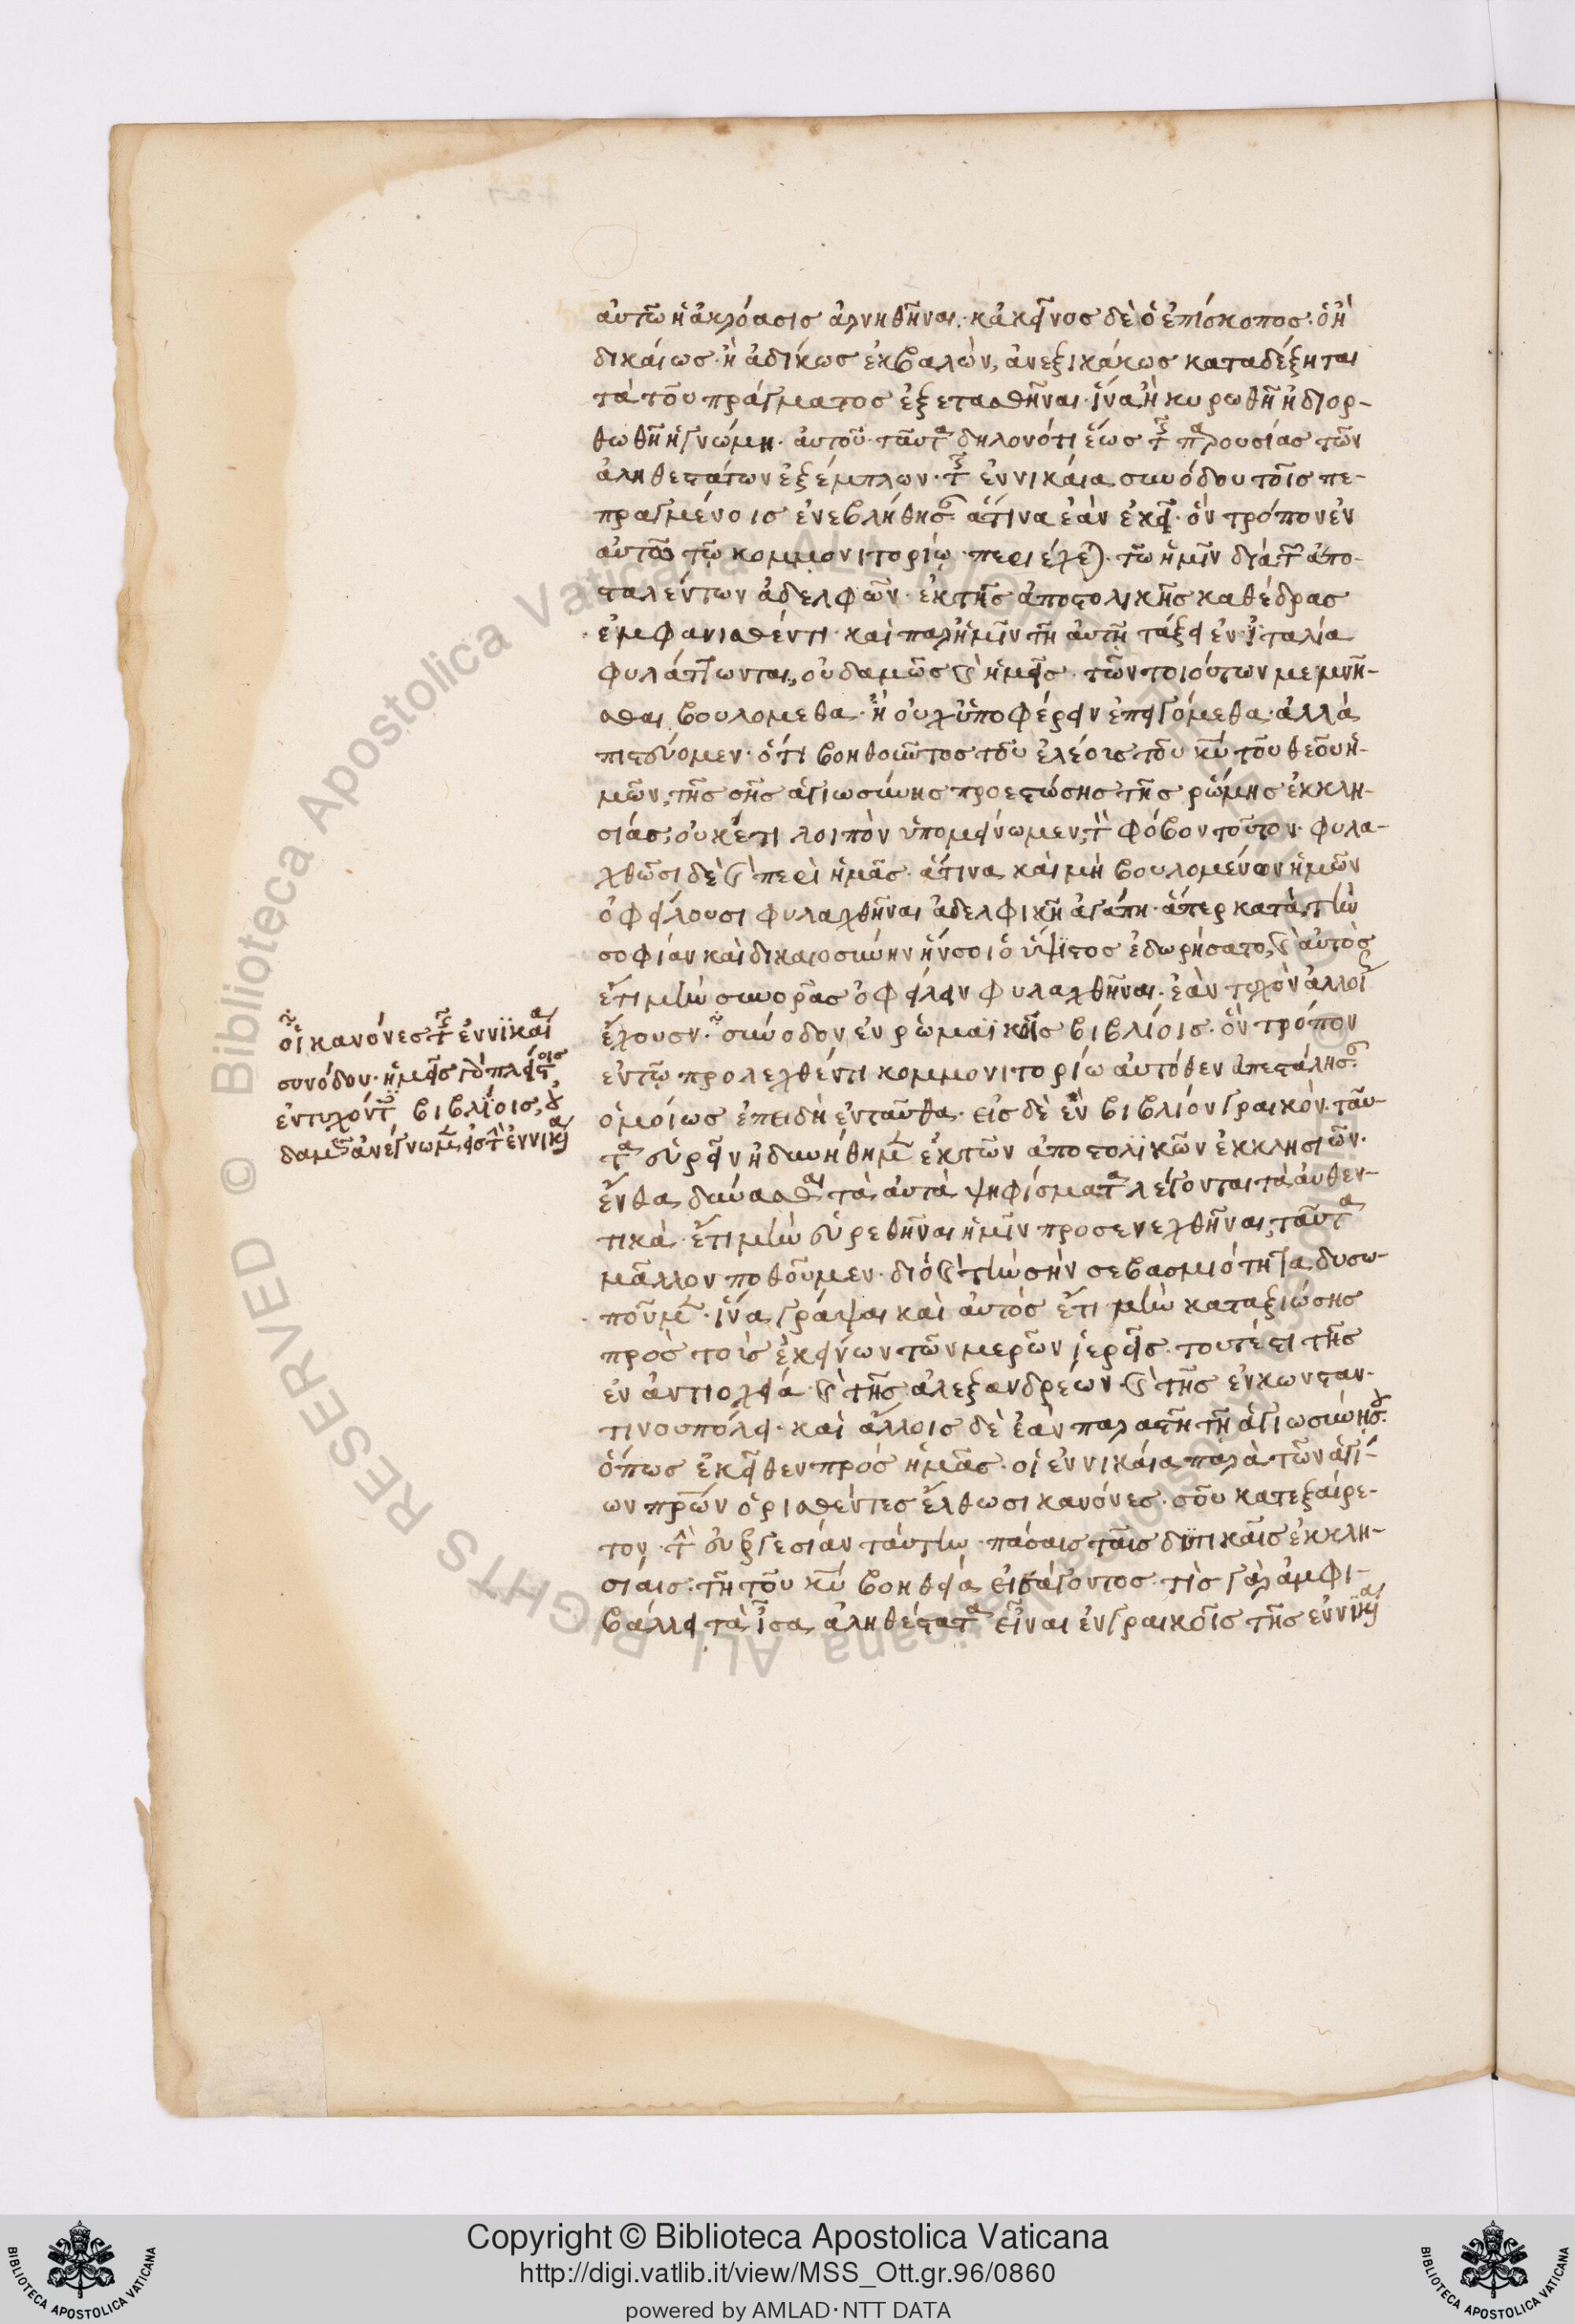 αὐτῶ ἡ ἀκρόασις ἀρνηθῆναι· κἀκεῖνος δὲ ὁ ἐπίσκοπος· ὁ ἢ
δικαίως· ἢ ἀδίκως ἐκβαλὼν, ἀνεξικάκως καταδέξηται
τὰ τοῦ πράγματος ἐξετασθῆναι· ἵνα ἢ κυρωθῆ ἢ διορ-
θωθῆ ἡ γνώμη· αὐτοῦ· ταῦτα δηλονότι ἕως τῆς παρουσίας τῶν
ἀληθεστάτων ἐξέμπλων· τῆς ἐν νικαία συνόδου τοῖς πε-
πραγμένοις ἐνεβλήθησαν· ἅτινα ἐὰν ἐκεῖ· ὃν τρόπον ἐν
αὐτῶ τῶ κομμονιτορίω· περιέχεται· τῶ ἡμῖν διὰ τῶν ἀπο-
σταλέντων ἀδελφῶν· ἐκ τῆς ἀποστολικῆς καθέδρας
ἐμφανισθέντι· καὶ παρ' ἡμῖν τῆ αὐτῆ τάξει ἐν ἰταλία
φυλάττωνται, οὐδαμῶς καὶ ἡμεῖς· τῶν τοιούτων μεμνῆ-
σθαι βουλομεθα· ἢ οὐχ ὑποφέρειν ἐπειγόμεθα· ἀλλὰ
πιστεύομεν· ὅτι βοηθοῦντος τοῦ ἐλέοις τοῦ κυ τοῦ θεοῦ ἡ-
μῶν, τῆς σῆς ἁγιωσύνης προεστώσης τῆς ῥώμης ἐκκλη-
σίας, οὐκέτι λοιπὸν ὑπομείνωμεν, τὸν φόβον τοῦτον· φυλα-
χθῶσι δὲ καὶ περὶ ἡμᾶς· ἅτινα καὶ μὴ βουλομένων ἡμῶν
ὀφείλουσι φυλαχθῆναι ἀδελφικῆ ἀγάπη· ἅπερ κατὰ τὴν
σοφίαν καὶ δικαιοσύνην ἥν σοι ὁ ὕψιστος ἐδωρήσατο, καὶ αὐτὸς
ἔτι μὴν συνορᾶς ὀφείλειν φυλαχθῆναι· ἐὰν τυχὸν ἄλλως
ἔχουσιν· τὴν σύνοδον ἐν ῥωμαϊκοῖς βιβλίοις· ὃν τρόπον
ἐν τῶ προλεχθέντι κομμονιτορίω αὐτόθεν ἀπεστάλησαν·
ὁμοίως ἐπειδὴ ἐνταῦθα· εἰς δὲ ἓν βιβλίον γραικόν· ταῦ-
τα εὑρεῖν ἠδυνήθημεν ἐκ τῶν ἀποστολϊκῶν ἐκκλησιῶν·
ἔνθα δύνασθαι τὰ αὐτὰ ψηφίσματα λέγονται τὰ αὐθεν-
τικὰ· ἔτι μὴν εὑρεθῆναι ἡμῖν προσενεχθῆναι, ταῦτα
μᾶλλον ποθοῦμεν· διὸ καὶ τὴν σὴν σεβασμιότητα δυσω-
ποῦμεν· ἵνα γράψαι καὶ αὐτὸς ἔτι μὴν καταξιώσης
πρὸς τοὺς ἐκείνων τῶν μερῶν ἱερεῖς· τουτέστι τῆς
ἐν ἀντιοχεία· καὶ τῆς ἀλεξανδρέων· καὶ τῆς ἐν κωνσταν-
τινουπόλει· καὶ ἄλλοις δὲ ἐὰν παραστῆ τῆ ἁγιωσύνη σου·
ὅπως ἐκεῖθεν πρὸς ἡμᾶς· οἱ ἐν νικαία παρὰ τῶν ἁγί-
ων πρων ὁρισθέντες ἔλθωσι κανόνες· σοῦ κατεξαίρε-
τον· τὴν εὐεργεσίαν ταύτην· πάσαις ταῖς δυτικαῖς ἐκκλη-
σίαις· τῆ τοῦ κυ βοηθεία εἰσάγοντος· τὶς γὰρ ἀμφι-
βάλλει τὰ ἴσα ἀληθέστατα εἶναι ἐν γραικοῖς τῆς ἐν νικαία
οἱ κανόνες τῆς ἐν νϊκαία
συνόδου· ἡμεῖς γὰρ πλείστοις
ἐντυχόντες βιβλίοις, οὐ
δαμῶς ἀνέγνωμεν εἰς τὴν ἐν νικαία